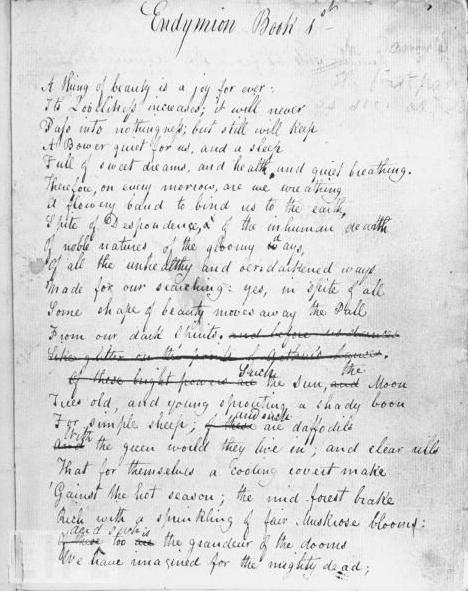 Endymion Book 1st
A Thing of beauty is a joy for ever:
Its Loveliness increases; it will never
Pass into nothingness; but still will keep
A Bower quiet for us, and a sleep
Full of sweet dreams, and health, and quiet breathing.
Therefore, on every morrow, are we wreathing
A flowery band to bind us to the earth,
Spite of Despondence, of the inhuman dearth
Of noble natures, of the gloomy days,
Of all the unhealthy and oer-darkened ways
Made for our searching: yes, in spite of all
Some shape of beauty moves away the Pall
From our dark Spirits. and before us dances
Like glitter on the points of Arthur's Lances.
Of these bright powers are Such the Sun, and the Moon
Trees old, and young sprouting a shady boon
For simple sheep; of these and such are daffodils
and with the green world they live in; and clear rills
That for themselves a cooling covert make
'Gainst the hot season; the mid forest brake
Rich with a sprinkling of fair Muskrose blooms:
of these and such too are is the grandeur of the dooms
We have imagined for the mighty dead;